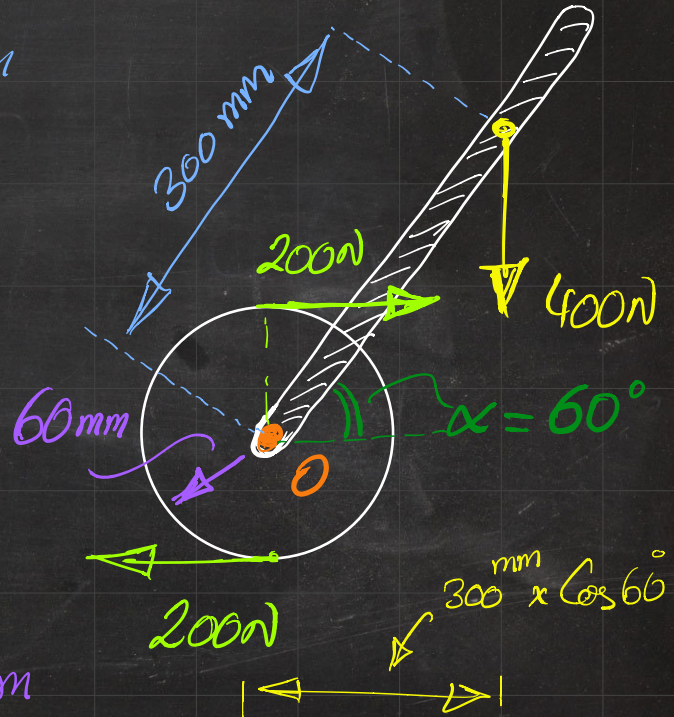 300 mm
200N
400N
α = 60°
60mm
O
200N
300 mm x Cos60°
m